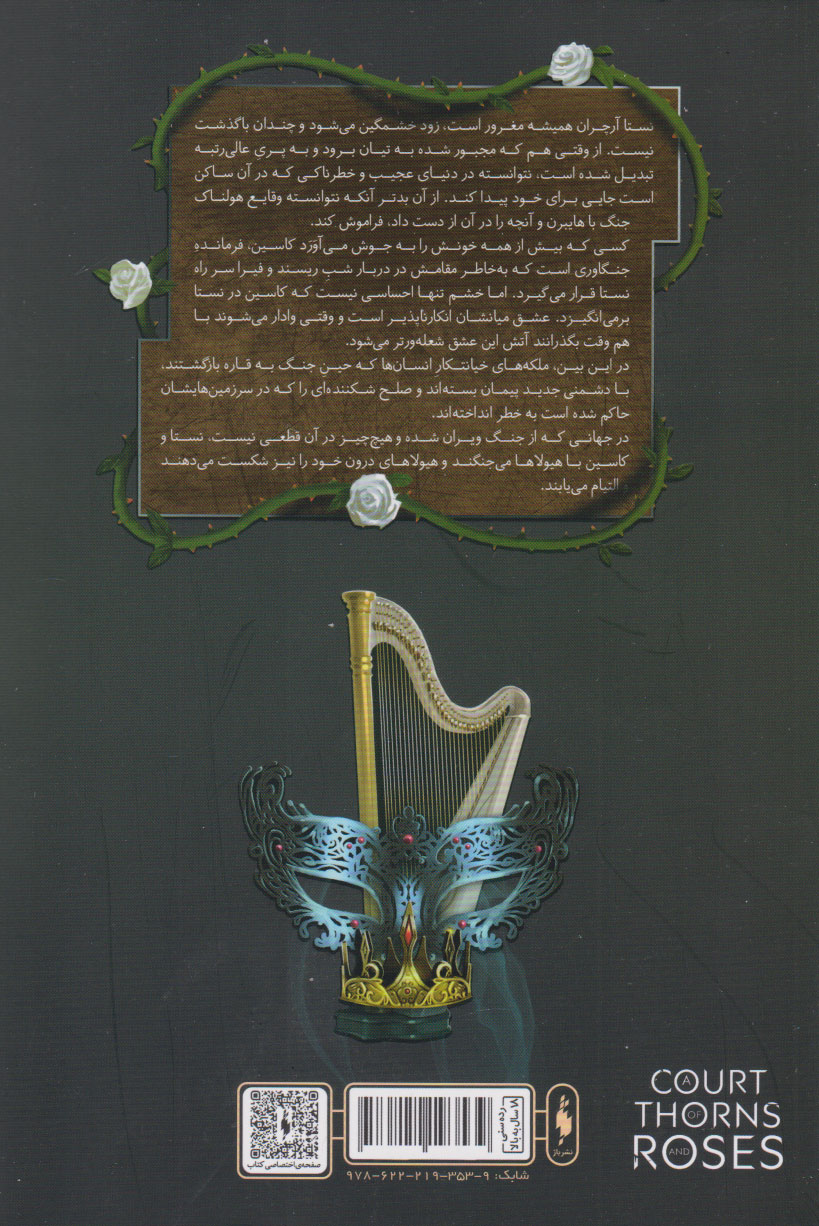 نستا آرچران همیشه مغرور است، زود خشمگین می‌شود و چندان باگذشت
نیست. از وقتی هم که مجبور شده به تیان برود و به پریِ عالی‌رتبه
تبدیل شده است، نتوانسته در دنیای عجیب و خطرناکی که در آن ساکن
است جایی برای خود پیدا کند. از آن بدتر آنکه نتوانسته وقایع هولناک
جنگ با هایبرن و آنچه را در آن از دست داد، فراموش کند.
کسی که بیش از همه خونش را به جوش می‌آوَرَد کاسین، فرماندهٔ
جنگاوری است که به‌خاطر مقامش در دربار شب ریسند و فیرا سر راه
نستا قرار می‌گیرد. اما خشم تنها احساسی نیست که کاسین در نستا
برمی‌انگیزد. عشق میانشان انکارناپذیر است و وقتی وادار می‌شوند با
هم وقت بگذرانند آتش این عشق شعله‌ورتر می‌شود.
در این بین، ملکه‌های خیانتکار انسان‌ها که حینِ جنگ به قاره بازگشتند،
با دشمنی جدید پیمان بسته‌اند و صلح شکننده‌ای را که در سرزمین‌هایشان
حاکم شده است به خطر انداخته‌اند.
در جهانی که از جنگ ویران شده و هیچ‌چیز در آن قطعی نیست، نستا و
کاسین با هیولاها می‌جنگند و هیولاهای درون خود را نیز شکست می‌دهند
التیام می‌یابند.
A COURT
OF THORNS
AND ROSES
صفحه‌ی اختصاصی کتاب
رده سنی
۱۸ سال به بالا
نشر باژ
شابک: ۹-۳۵۳-۲۱۹-۶۲۲-۹۷۸